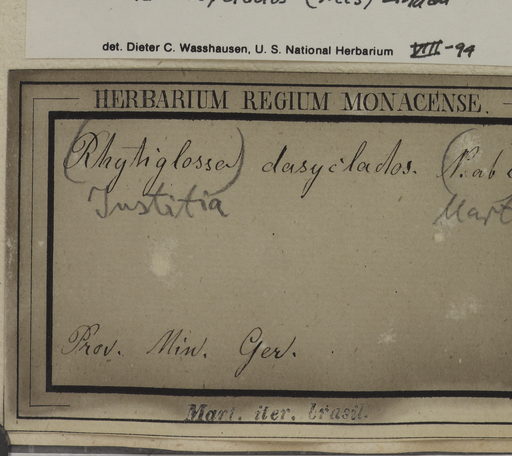 det. Dieter C. Wasshausen, U. S. National Herbarium VIII-94
HERBARIUM REGIUM MONACENSE.
(Rhytiglossa) dasyclados. (N. ab
Justitia Mart
Prov. Min. Ger.
Mart. iter. brasil.